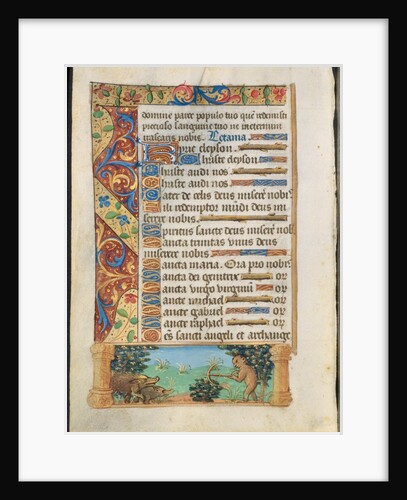 domine parce populo tuo quē redemisti
precioso sanguine tuo ne in eternum
irascaris nobis. Letania.
Kyrie eleyson.
Christe eleyson
Christe audi nos
Christe audi nos
Pater de celis deus miserē nobis
Fili redemptor mūdi deus mi
serere nobis.
Spiritus sancte deus miserē nobis
Sancta trinitas vnus deus
miserere nobis
Sancta maria. Ora pro nobis
Sancta dei genitrix or
Sancta virgo virginū or
Sancte michael or
Sancte gabriel or
Sancte raphael or
Oēs sancti angeli et archange